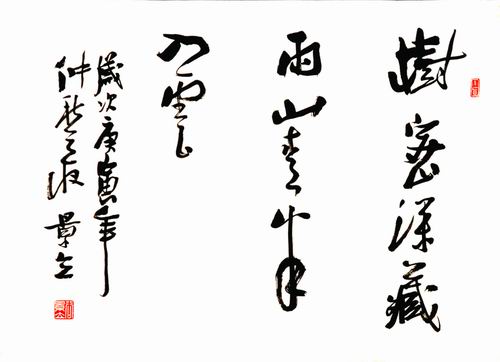 樹密深藏
雨山青半
入雲
歲次庚寅年
仲秋之 景立